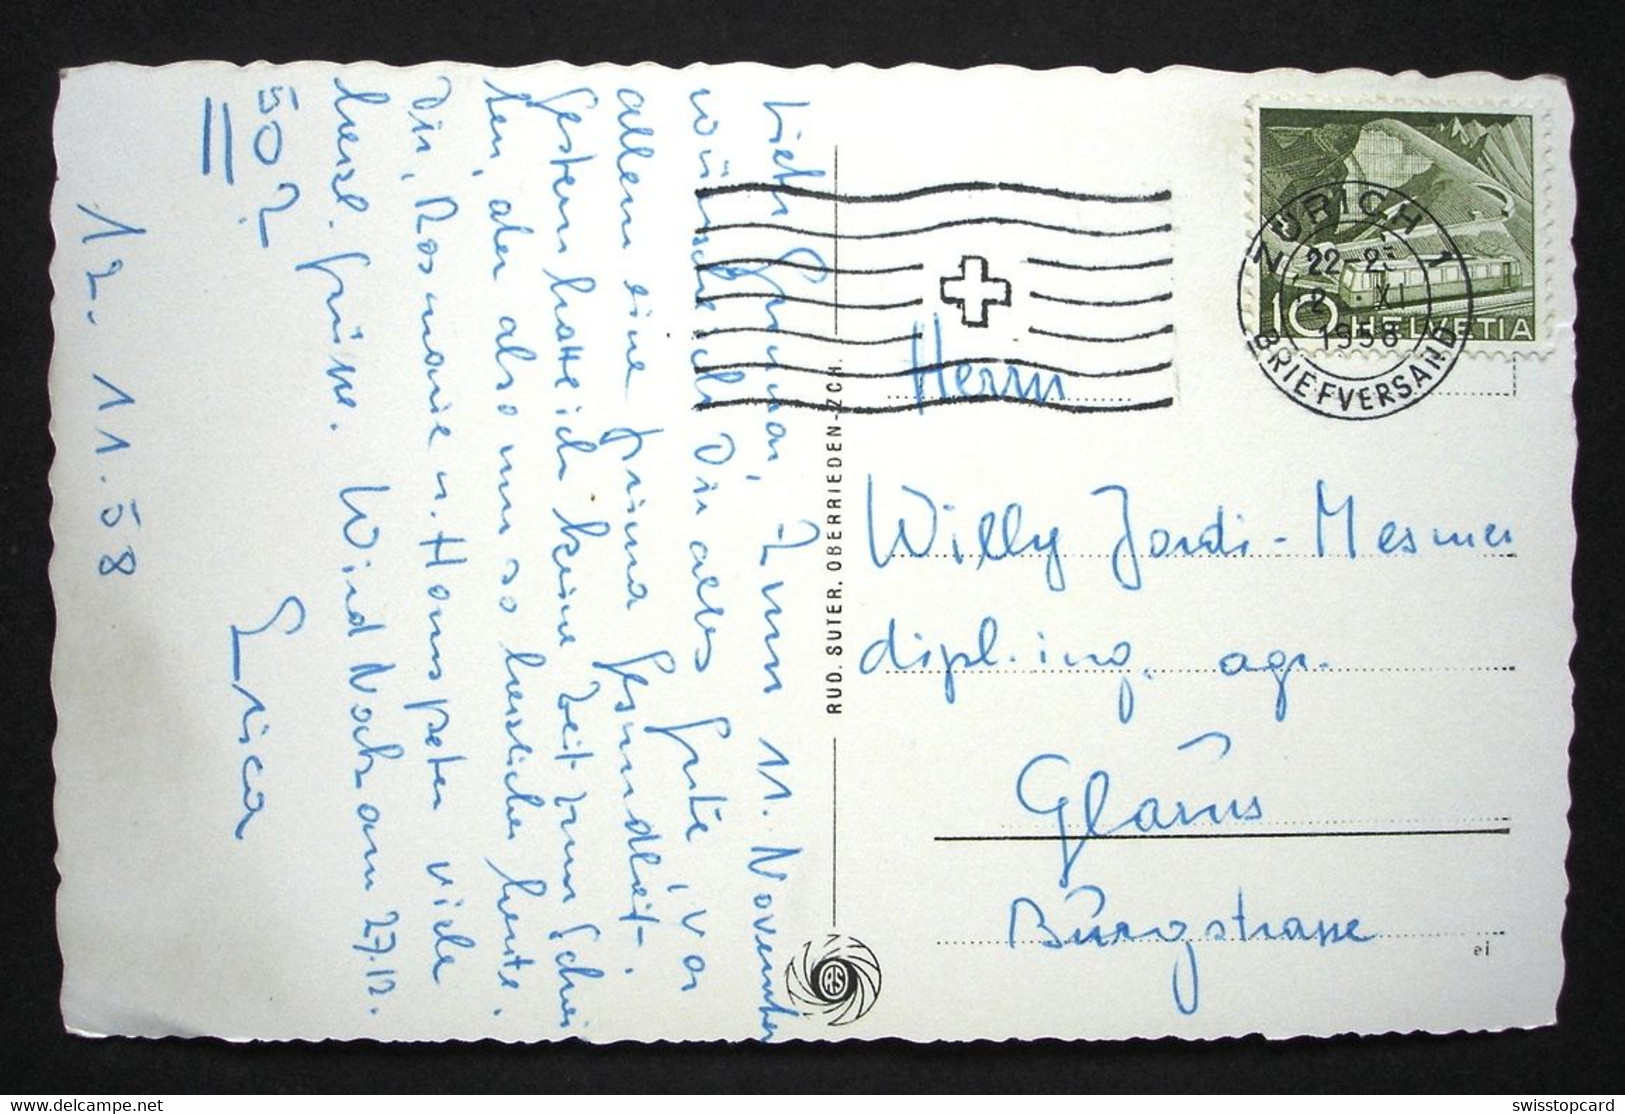 Zum 11. November
wünsche ich Dir alles Gute, vor
allem eine prima Gesundheit.
Gestern hatte ich keine Zeit zum Schrei
ben, aber also um so herzlicher heute.
Dir, Rosmarie u. Hanspeter viele
herzl. Grüsse. Wird Noch am 27.12.
50?
Erica
12. 11. 58
RUD. SUTER, OBERRIEDEN-ZCH.
ZÜRICH 1
22-23
XI
1958
BRIEFVERSAND
10 HELVETIA
Herrn
Willy Jordi-Mesmer
dipl. ing. agr.
Glarus
Burgstrasse
ei
RS
WWW.DELCAMPE.NET
swisstopcard